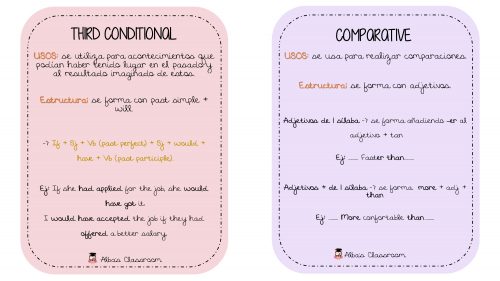 THIRD CONDITIONAL
USOS: se utiliza para acontecimientos que
podían haber tenido lugar en el pasado y
al resultado imaginado de estos.
Estructura: se forma con past simple +
will.
-> If + Sj + Vb (past perfect) + Sj + would +
have + Vb (past participle).
Ej: If she had applied for the job, she would
have got it.
I would have accepted the job if they had
offered a better salary.
Alba's Classroom
COMPARATIVE
USOS: se usa para realizar comparaciones.
Estructura: se forma con adjetivos.
Adjetivos de 1 sílaba -> se forma añadiendo -er al
adjetivo + tan
Ej: ___ Faster than___.
Adjetivos + de 1 sílaba -> se forma more + adj +
than
Ej: ___ More confortable than___.
Alba's Classroom